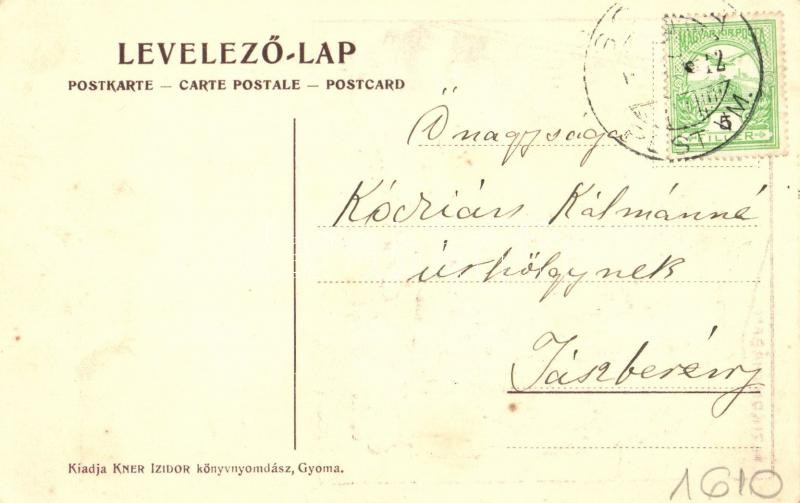 LEVELEZŐ-LAP
POSTKARTE — CARTE POSTALE — POSTCARD
MAGYAR KIR. POSTA
12
5
FILLÉR
Őnagysága
Kódriáns Kálmánné
úrhölgynek
Jászberény
Kiadja KNER IZIDOR könyvnyomdász, Gyoma.
1610